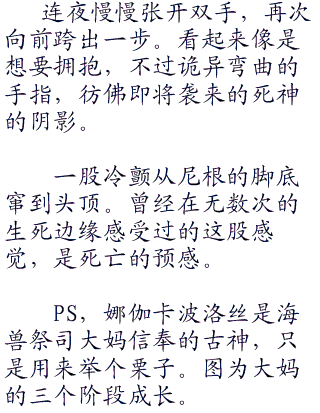 连夜慢慢张开双手，再次
向前跨出一步。看起来像是
想要拥抱，不过诡异弯曲的
手指，彷佛即将袭来的死神
的阴影。
一股冷颤从尼根的脚底
窜到头顶。曾经在无数次的
生死边缘感受过的这股感
觉，是死亡的预感。
PS，娜伽卡波洛丝是海
兽祭司大妈信奉的古神，只
是用来举个栗子。图为大妈
的三个阶段成长。